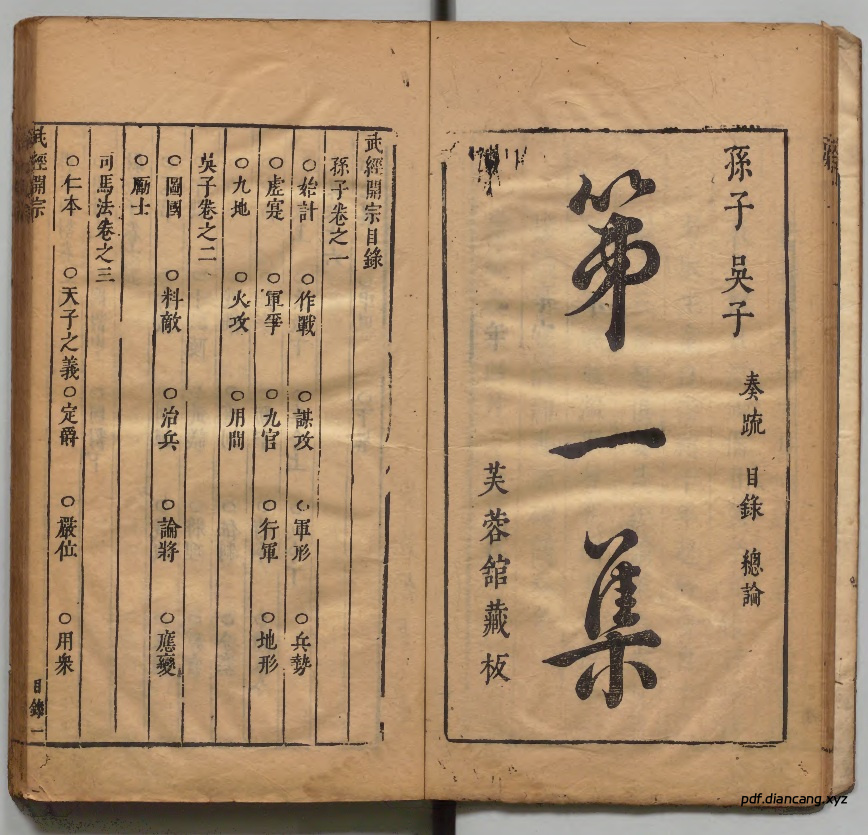 孫子 吳子
奏疏 目錄 總論
第一集
芙蓉舘藏板
武經開宗目錄
孫子卷之一
○始計 ○作戰 ○謀攻 ○軍形 ○兵勢
○虛寔 ○軍爭 ○九官 ○行軍 ○地形
○九地 ○火攻 ○用間
吳子卷之二
○圖國 ○料敵 ○治兵 ○論將 ○應變
○勵士
司馬法卷之三
○仁本 ○天子之義 ○定爵 ○嚴位 ○用衆
武經開宗 目錄 一
pdf.diancang.xyz